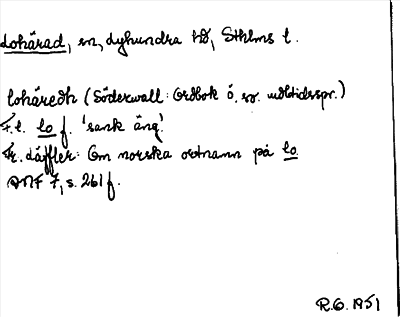 Lohärad, sn, Lyhundra hd, Sthlms l.
lohäredh (Söderwall: Ordbok ö. sv. medtidsspr.)
F.l. lo f. 'sank äng'.
Fr. Läffler: Om norska ordnamn på lo.
ANF 7, s. 261 f.
R.O. 1951